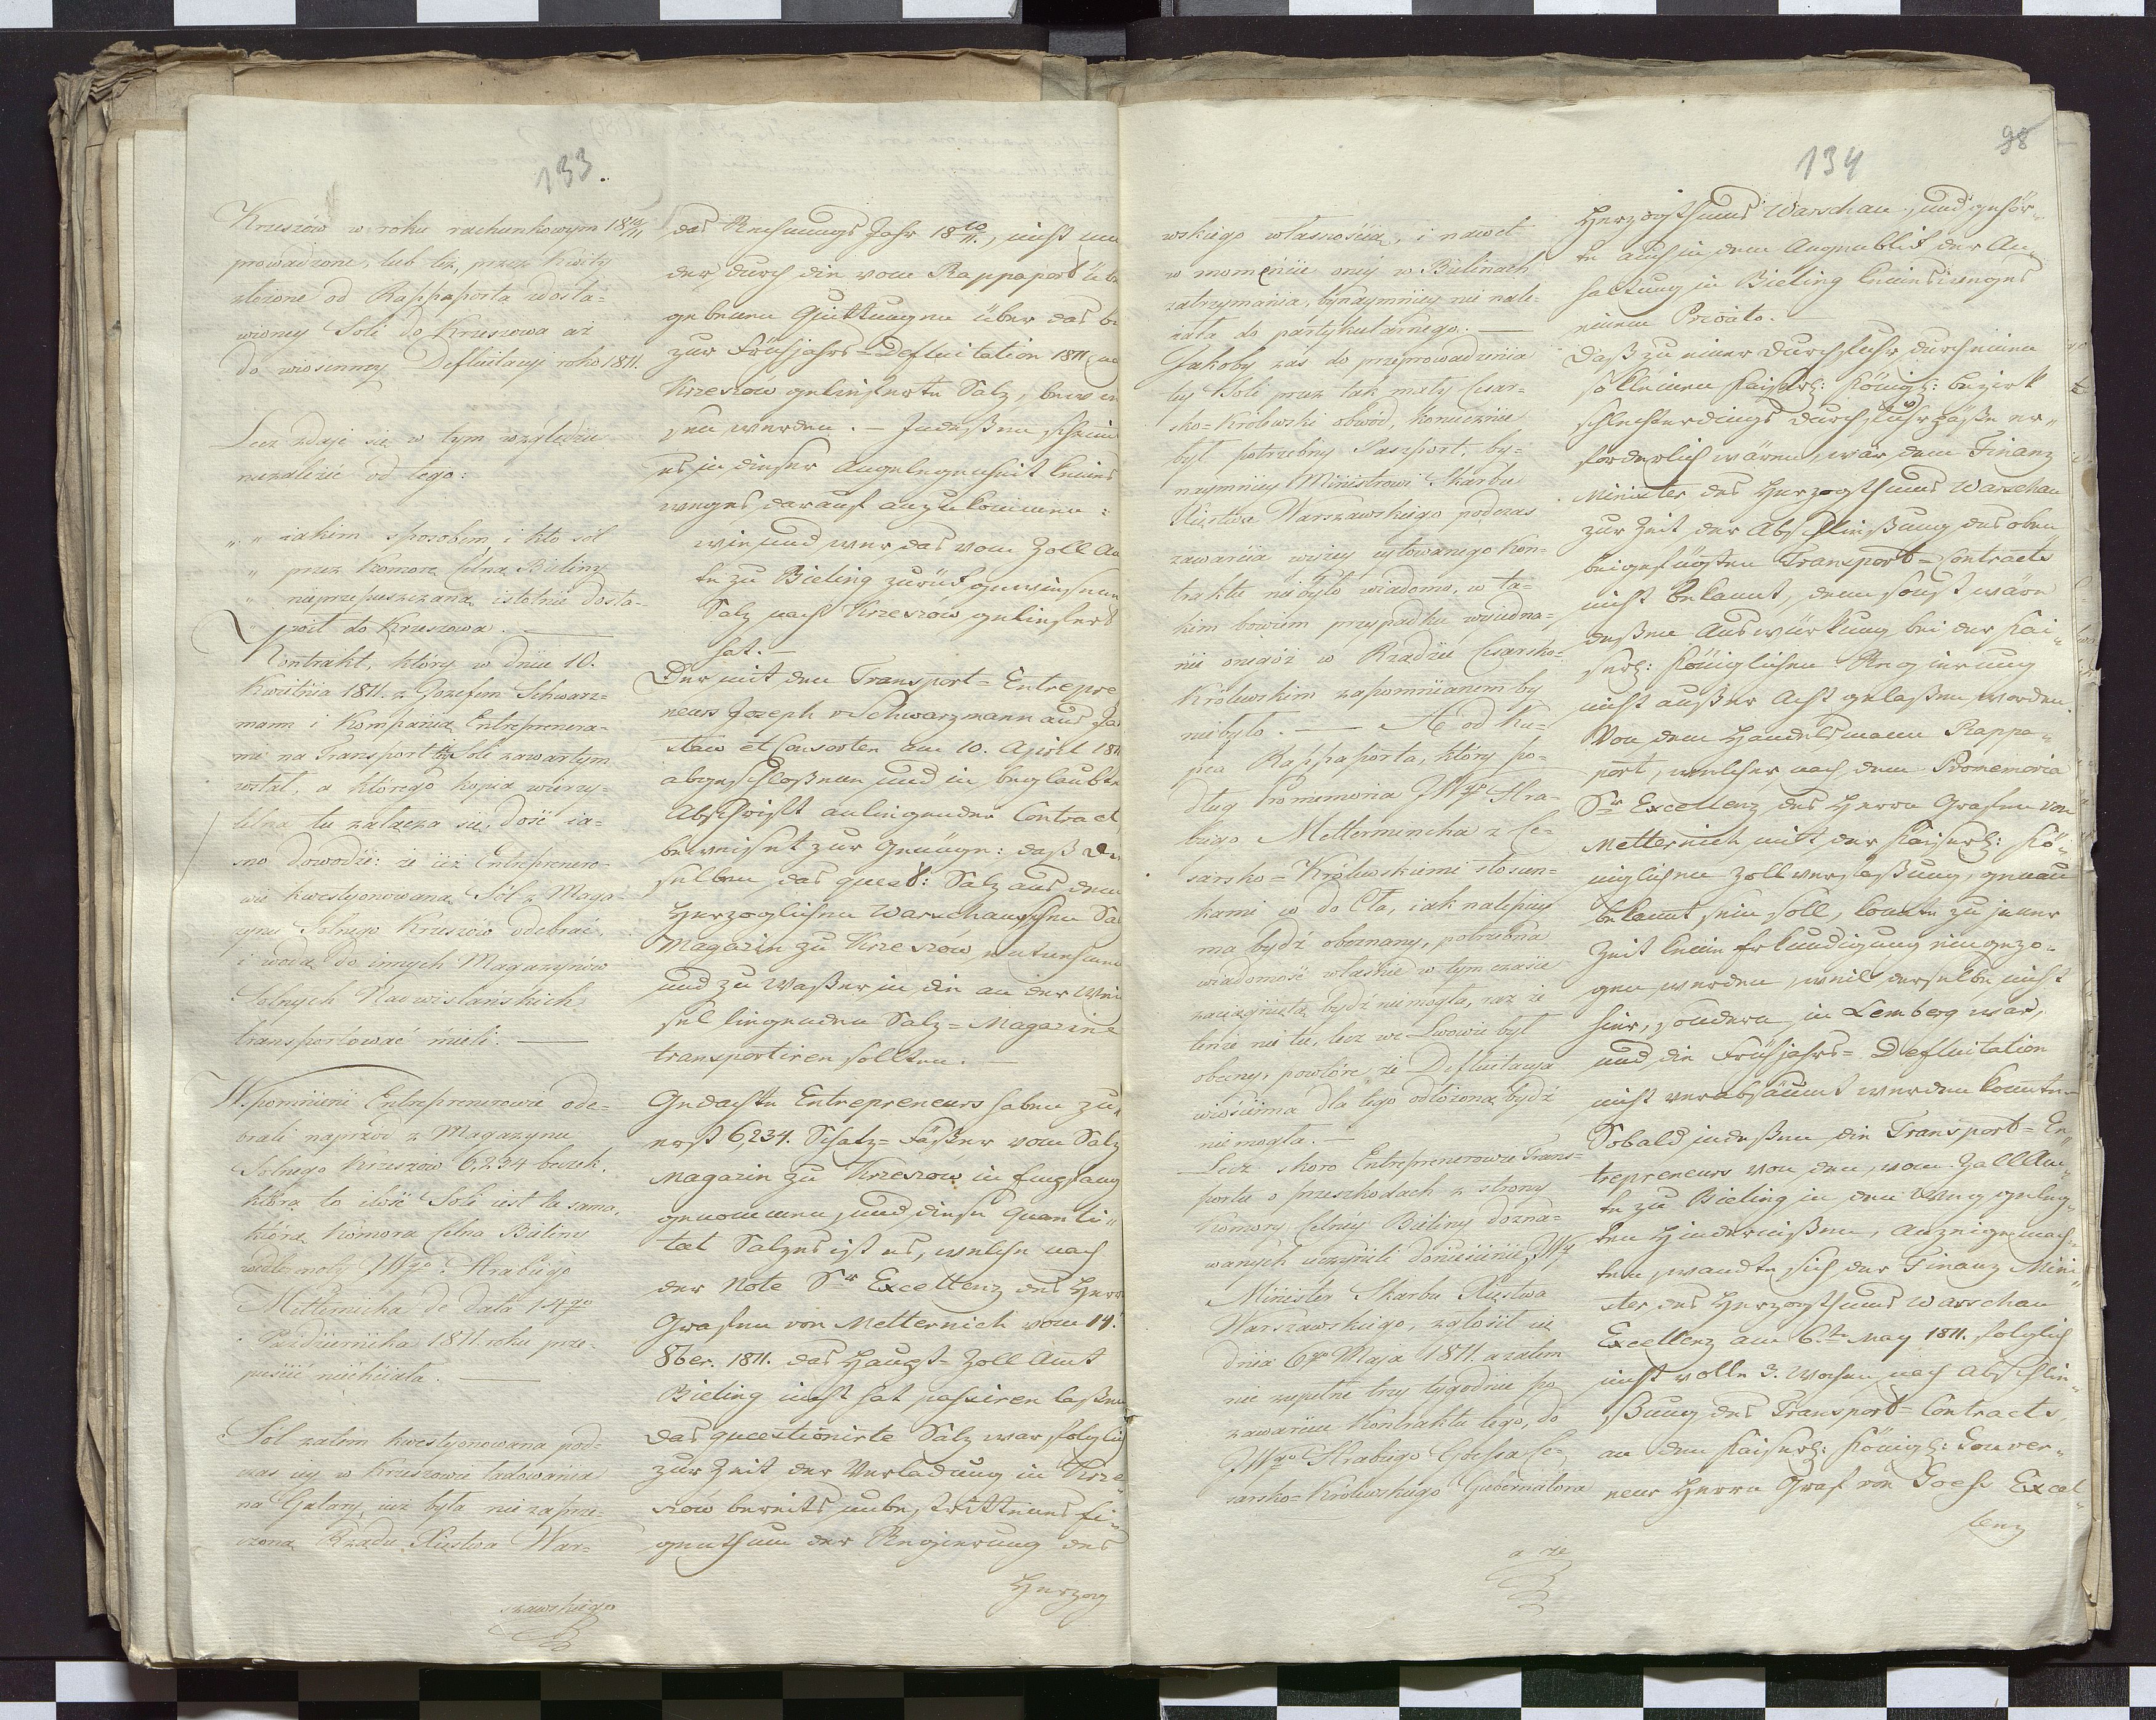 133.
Kruszów w roku rachunkowym 18 10/11
prowadzone, lub też, przez Kwity
złożone od Rappaporta zdosta=
wioney Soli do Kruszowa aż
do wiosenney Defluitacyi roko 1811.
Lecz zdaje się w tym względzie
niezależeć od tego:
„ „ iakim sposobem i kto sól
„ przez Komorę Celną Bieliny
„ nieprzepuszczaną istotnie dosta=
„ wił do Kruszowa. —
Kontrakt, który w dniu 10.
Kwietnia 1811. z Jozefem Schwarz=
mann i Kompanią Entreprenera=
mi na Transport tey Soli zawartym
został, a którego kopia wierzy=
telna tu załącza się, dość ia=
sno dowodzi: że ciż Entreprenero=
wie kwestyonowaną Sól z Maga=
zynu Solnego Kruszów odebrać,
i wodą do innych Magazynów
Solnych Nadwiślańskich
transportować mieli. —
Wspomnieni Entreprenerowie ode=
brali naprzód z Magazynu
Solnego Kruszów 6,234 beczek.
która to ilość Soli iest ta sama,
którą Komora Celna Bieliny
wedle noty JWgo Hrabiego
Metternicha de data 14go
Października 1811. roku prze=
puścić niechciała. —
Sól zatem kwestyonowana pod=
czas iey w Kruszowie ładowania
na Galary, iuż była nie zaprze=
czoną Rządu Xięstwa War=
szawskiego
das Rechnungs Jahr 18 10/11, nicht nur
der durch die vom Rappaport über
gebenen Quittungen über das bis
zur Frühjahrs=Defluitation 1811 nach
Krzeszow gelieferte Salz, bewie
sen werden. — Indeßen scheint
es in dieser Angelegenheit keines
weges darauf anzukommen:
wie und wer das vom Zoll Am
te zu Bieling zurückgewiesene
Salz nach Krzeszow geliefert
hat. —
Der mit den Transport=Entrepre
neurs Joseph v Schwarzmann aus Ja
slaw et Consorten am 10. April 1811
abgeschloßene und in beglaubter
Abschrift anliegender Contract
beweiset zur Genüge: daß die
selben das quest: Salz aus dem
Herzoglichen Warschauschen Salz
Magazin zu Krzeszów entnehmen
und zu Waßer in die an der Weich
sel liegenden Salz=Magazine
transportiren sollten. —
Gedachte Entrepreneurs haben zu
erst 6,234. Schatz=Fäßer vom Salz
Magazin zu Krzeszów in Empfang
genommen, und diese Quanti=
tat Salzes ist es, welche nach
der Note Sr Excellenz des Herrn
Grafen von Metternich vom 14.
8ber. 1811. das Haupt=Zoll Amt
Bieling nicht hat passiren laßen
Das questionirte Salz war folglich
zur Zeit der Verladung in Krze=
szów bereits unbestrittenes Ei=
genthum der Regierung des
Herzog
98
134
wskiego własnością, i nawet
w momencie oney w Bielinach
zatrzymania, bynaymniey nie nale=
żała do partykularnego. —
Jakoby zaś do przeprowadzenia
tey Soli przez tak mały Cesar=
sko=Królewski obwód, koniecznie
był potrzebny Paszport, by=
naymniey Ministrowi Skarbu
Xięstwa Warszawskiego podczas
zawarcia wyżey cytowanego Kon=
traktu niebyło wiadomo, w ta=
kim bowiem przypadku wyiedna=
nie onegóż w Rządzie Cesarsko=
Królewskim zapomnianem by
niebyło. — A od Ku=
pca Rappaporta, który po=
dług Promemoria JWgo Hra=
biego Metternincha z Ce=
sarsko=Królewskiemi stosun=
kami co do Cła, iak nalepiey
ma bydź obeznany, potrzebna
wiadomość właśnie w tym czasie
zaciągniętą bydź niemogła, raz że
tenże nie tu, lecz we Lwowie był
obecny, powtóre że Defluitacya
wiosienna dla tego odłożoną bydź
nie mogła. —
Lecz skoro Entreprenerowie Trans=
portu o przeszkodach z strony
Komory Celney Bieliny dozna=
wanych uczynili doniesienie, JW
Minister Skarbu Xięstwa
Warszawskiego, zgłosił się
dnia 6go Maja 1811. a zatem
nie zupełne trzy tygodnie po
zawarciu Kontraktu tego, do
JWgo Hrabiego Goessa Ce=
sarsko=Królewskiego Gubernatora
a że
Herzogthums Warschau, und gehör=
te auch in dem Augenblick der An=
haltung in Bieling keinesweges
einem Privato. —
Daß zu einer Durchfuhr durch einen
so kleinen Kaiserl: Königl: Bezirk
schlechterdings Durchfuhrpäße er=
forderlich wären, war dem Finanz
Minister des Herzogthums Warschau
zur Zeit der Abschließung des oben
beigefügten Transport=Contracts
nicht bekannt, denn sonst wäre
deßen Auswürkung bei der Kai=
serl: Königlichen Regierung
nicht außer Acht gelaßen worden.
Von dem Handelsmann Rappa=
port, welcher nach dem Promemoria
Sr Excellenz des Herrn Grafen von
Metternich mit der Kaiserl: Kö=
niglichen Zollverfaßung genau
bekannt sein soll, konnte zu jener
Zeit keine Erkundigung eingezo=
gen werden, weil derselbe nicht
hier, sondern in Lemberg war,
und die Frühjahrs=Defluitation
nicht verabsäumt werden konnte.—
Sobald indeßen die Transport=En=
trepreneurs von den, vom Zoll Am=
te zu Bieling in den Weg geleg=
ten Hindernißen, Anzeige mach=
ten, wandte sich der Finanz Mini=
ster des Herzogthums Warschau
Excellenz am 6.ten May 1811. folglich
nicht volle 3. Wochen nach Abschlie=
ßung des Transport=Contracts,
an den Kaiserl: Königl: Gouver=
neur Herrn Graf von Goess Excel=
lenz